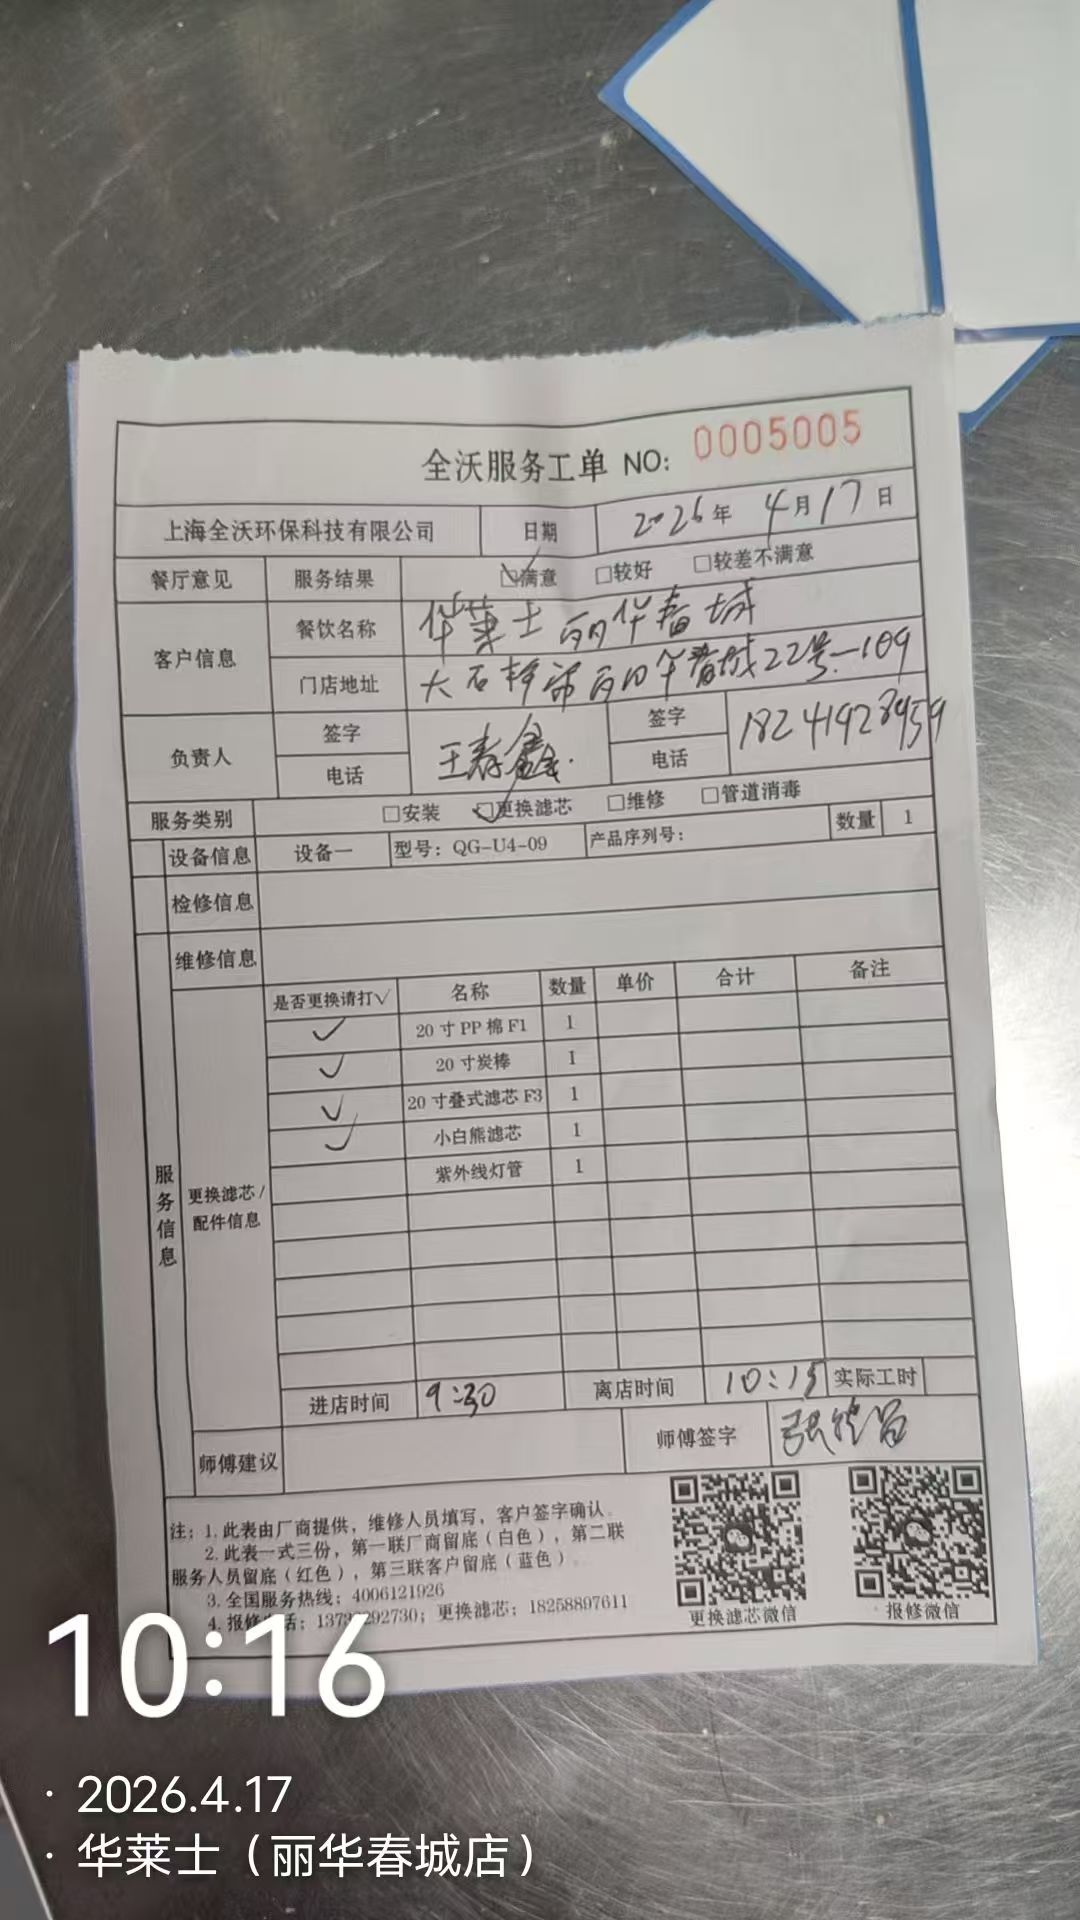 全沃服务工单 NO: 0005005
上海全沃环保科技有限公司 日期 2026年 4月17日
餐厅意见 服务结果 ☑满意 □较好 □较差不满意
客户信息 餐饮名称 华莱士丽华春城
门店地址 大石桥市丽华春城22号-109
负责人 签字 电话 王春鑫 签字 电话 18241928959
服务类别 □安装 ☑更换滤芯 □维修 □管道消毒
设备信息 设备一 型号：QG-U4-09 产品序列号： 数量 1
检修信息
维修信息
服务信息
更换滤芯/配件信息
是否更换请打√ 名称 数量 单价 合计 备注
√ 20寸PP棉F1 1
√ 20寸炭棒 1
√ 20寸叠式滤芯F3 1
√ 小白熊滤芯 1
紫外线灯管 1
进店时间 9:30 离店时间 10:15 实际工时
师傅建议 师傅签字
注：1. 此表由厂商提供，维修人员填写，客户签字确认。
2. 此表一式三份，第一联厂商留底（白色），第二联
服务人员留底（红色），第三联客户留底（蓝色）。
3. 全国服务热线：4006121926
4. 报修 话：137 292730；更换滤芯：18258897611
更换滤芯微信 报修微信
10:16
· 2026.4.17
· 华莱士（丽华春城店）